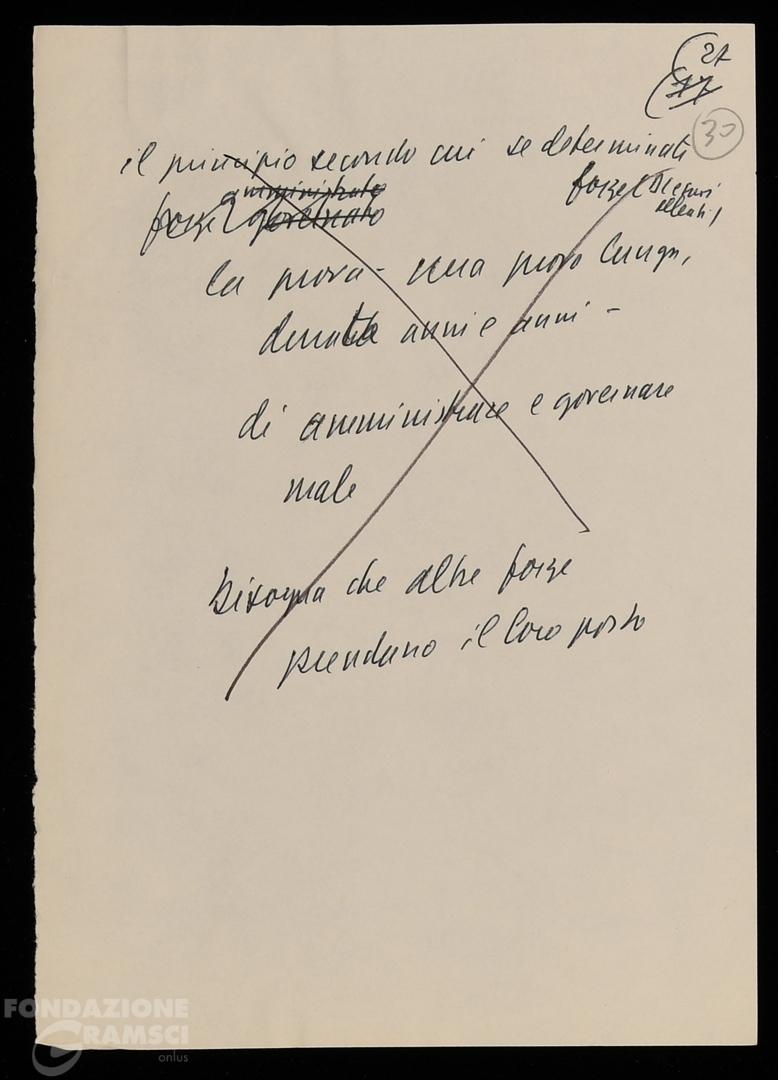 (27
(17
30
il principio secondo cui se determinate
amministrato
forze governato
forze (
la prova - una prova lunga,
durata anni e anni -
di amministrare e governare
male
Bisogna che altre forze
prendano il loro posto
FONDAZIONE
GRAMSCI
onlus